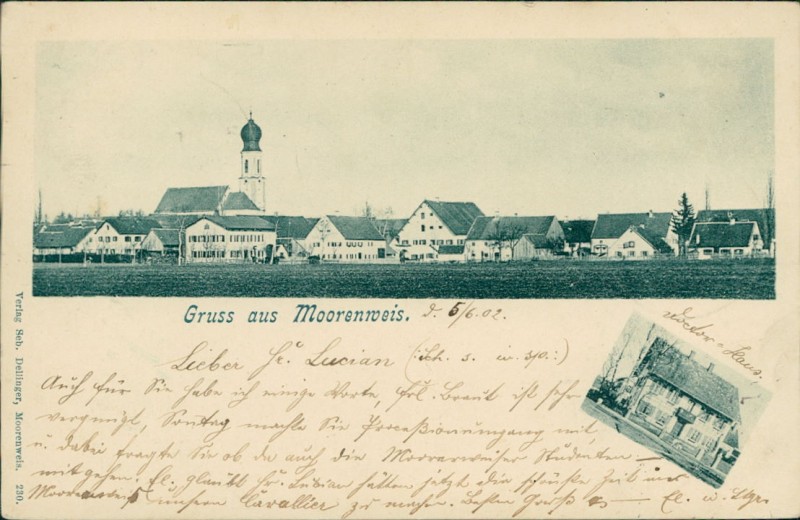 Gruss aus Moorenweis. d. 5/6.02.
Doctor-Haus.
Lieber Hr. Lucian (: Ich s. :)
Auch für Sie habe ich einige Worte, Frl. Braut ist sehr
vergnügt, Sontag machte Sie Processionumgang mit,
u. dabei fragte Sie ob da auch die Moorenweiser Studenten
mitgehen. El. glaubt Hr. Lucian hätten jetzt die schönste Zeit um
Moorenweis unsern Cavallier zu machen. Besten Gruß El. u.
Verlag Seb. Dellinger, Moorenweis. 230.